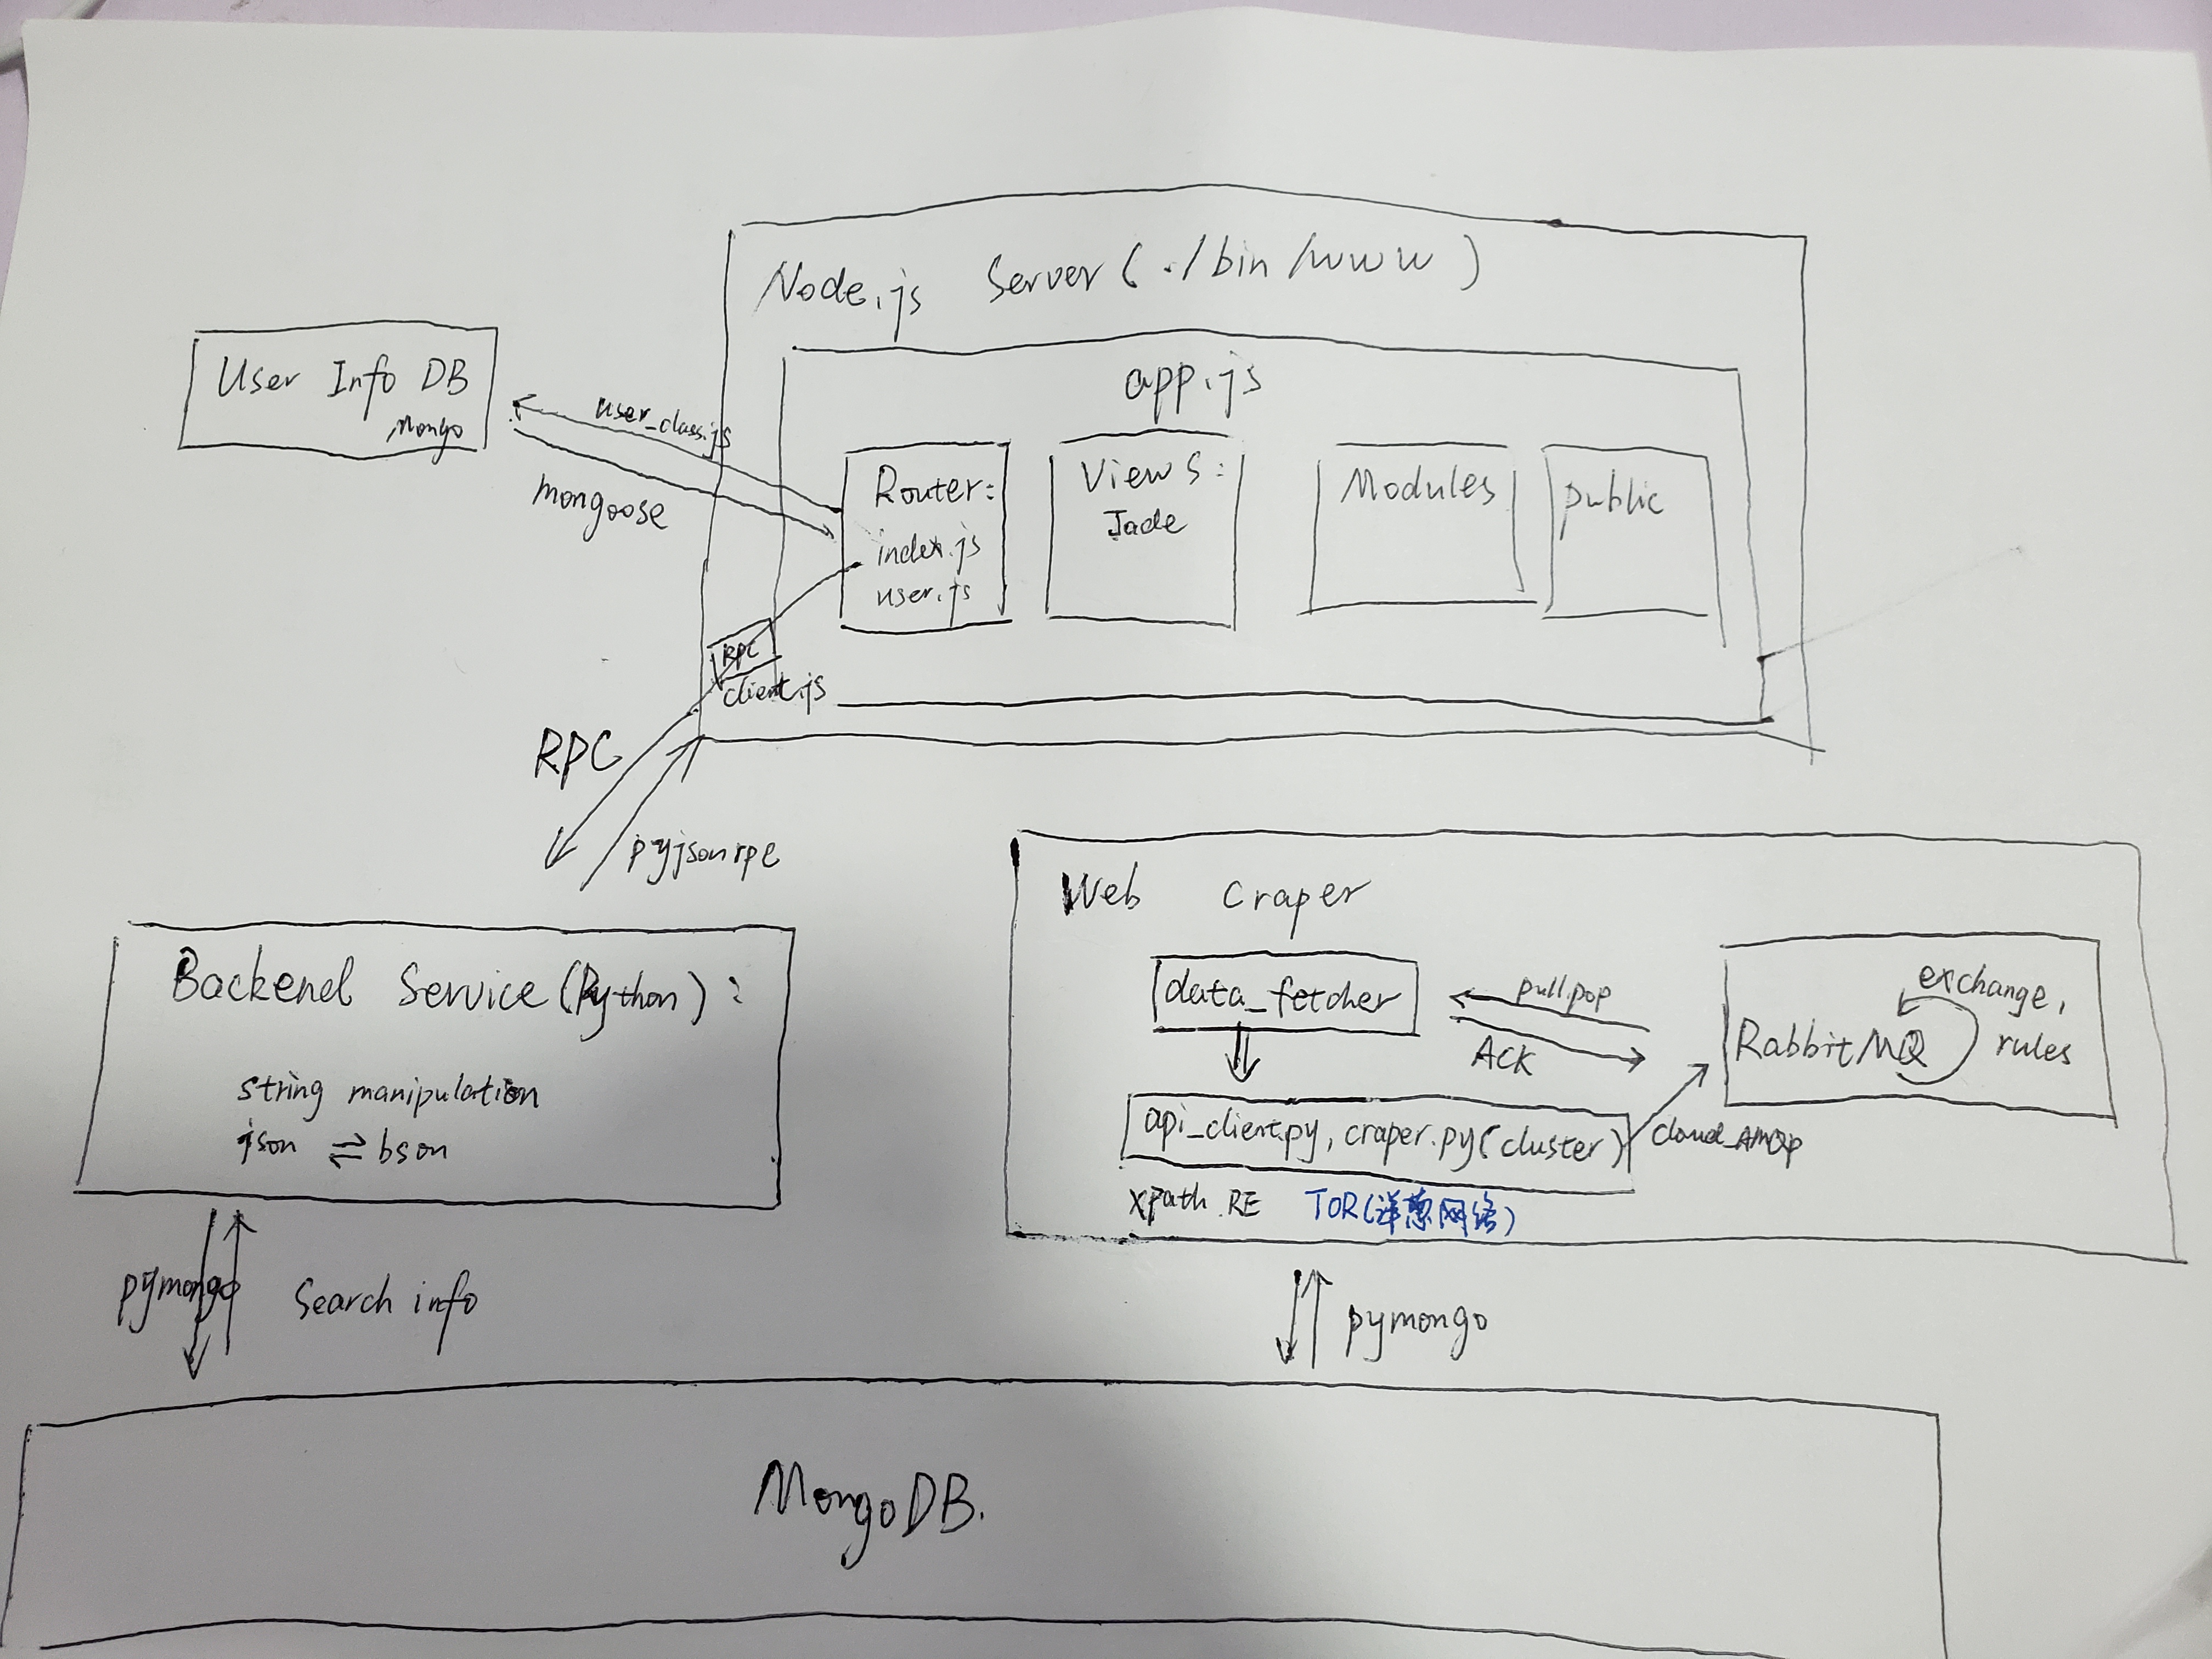 Node.js Server ( ./bin/www )
User Info DB
Mongo
user_class.js
mongoose
app.js
Router:
index.js
user.js
Views:
Jade
Modules
public
RPC
client.js
RPC
pyjsonrpc
Backend Service (Python) :
string manipulation
json ⇌ bson
pymongo
Search info
Web Craper
data_fetcher
pull.pop
ACK
RabbitMQ
exchange,
rules
api_client.py, craper.py(cluster)
cloud_AMQP
xpath RE TOR(洋葱网络)
pymongo
MongoDB.